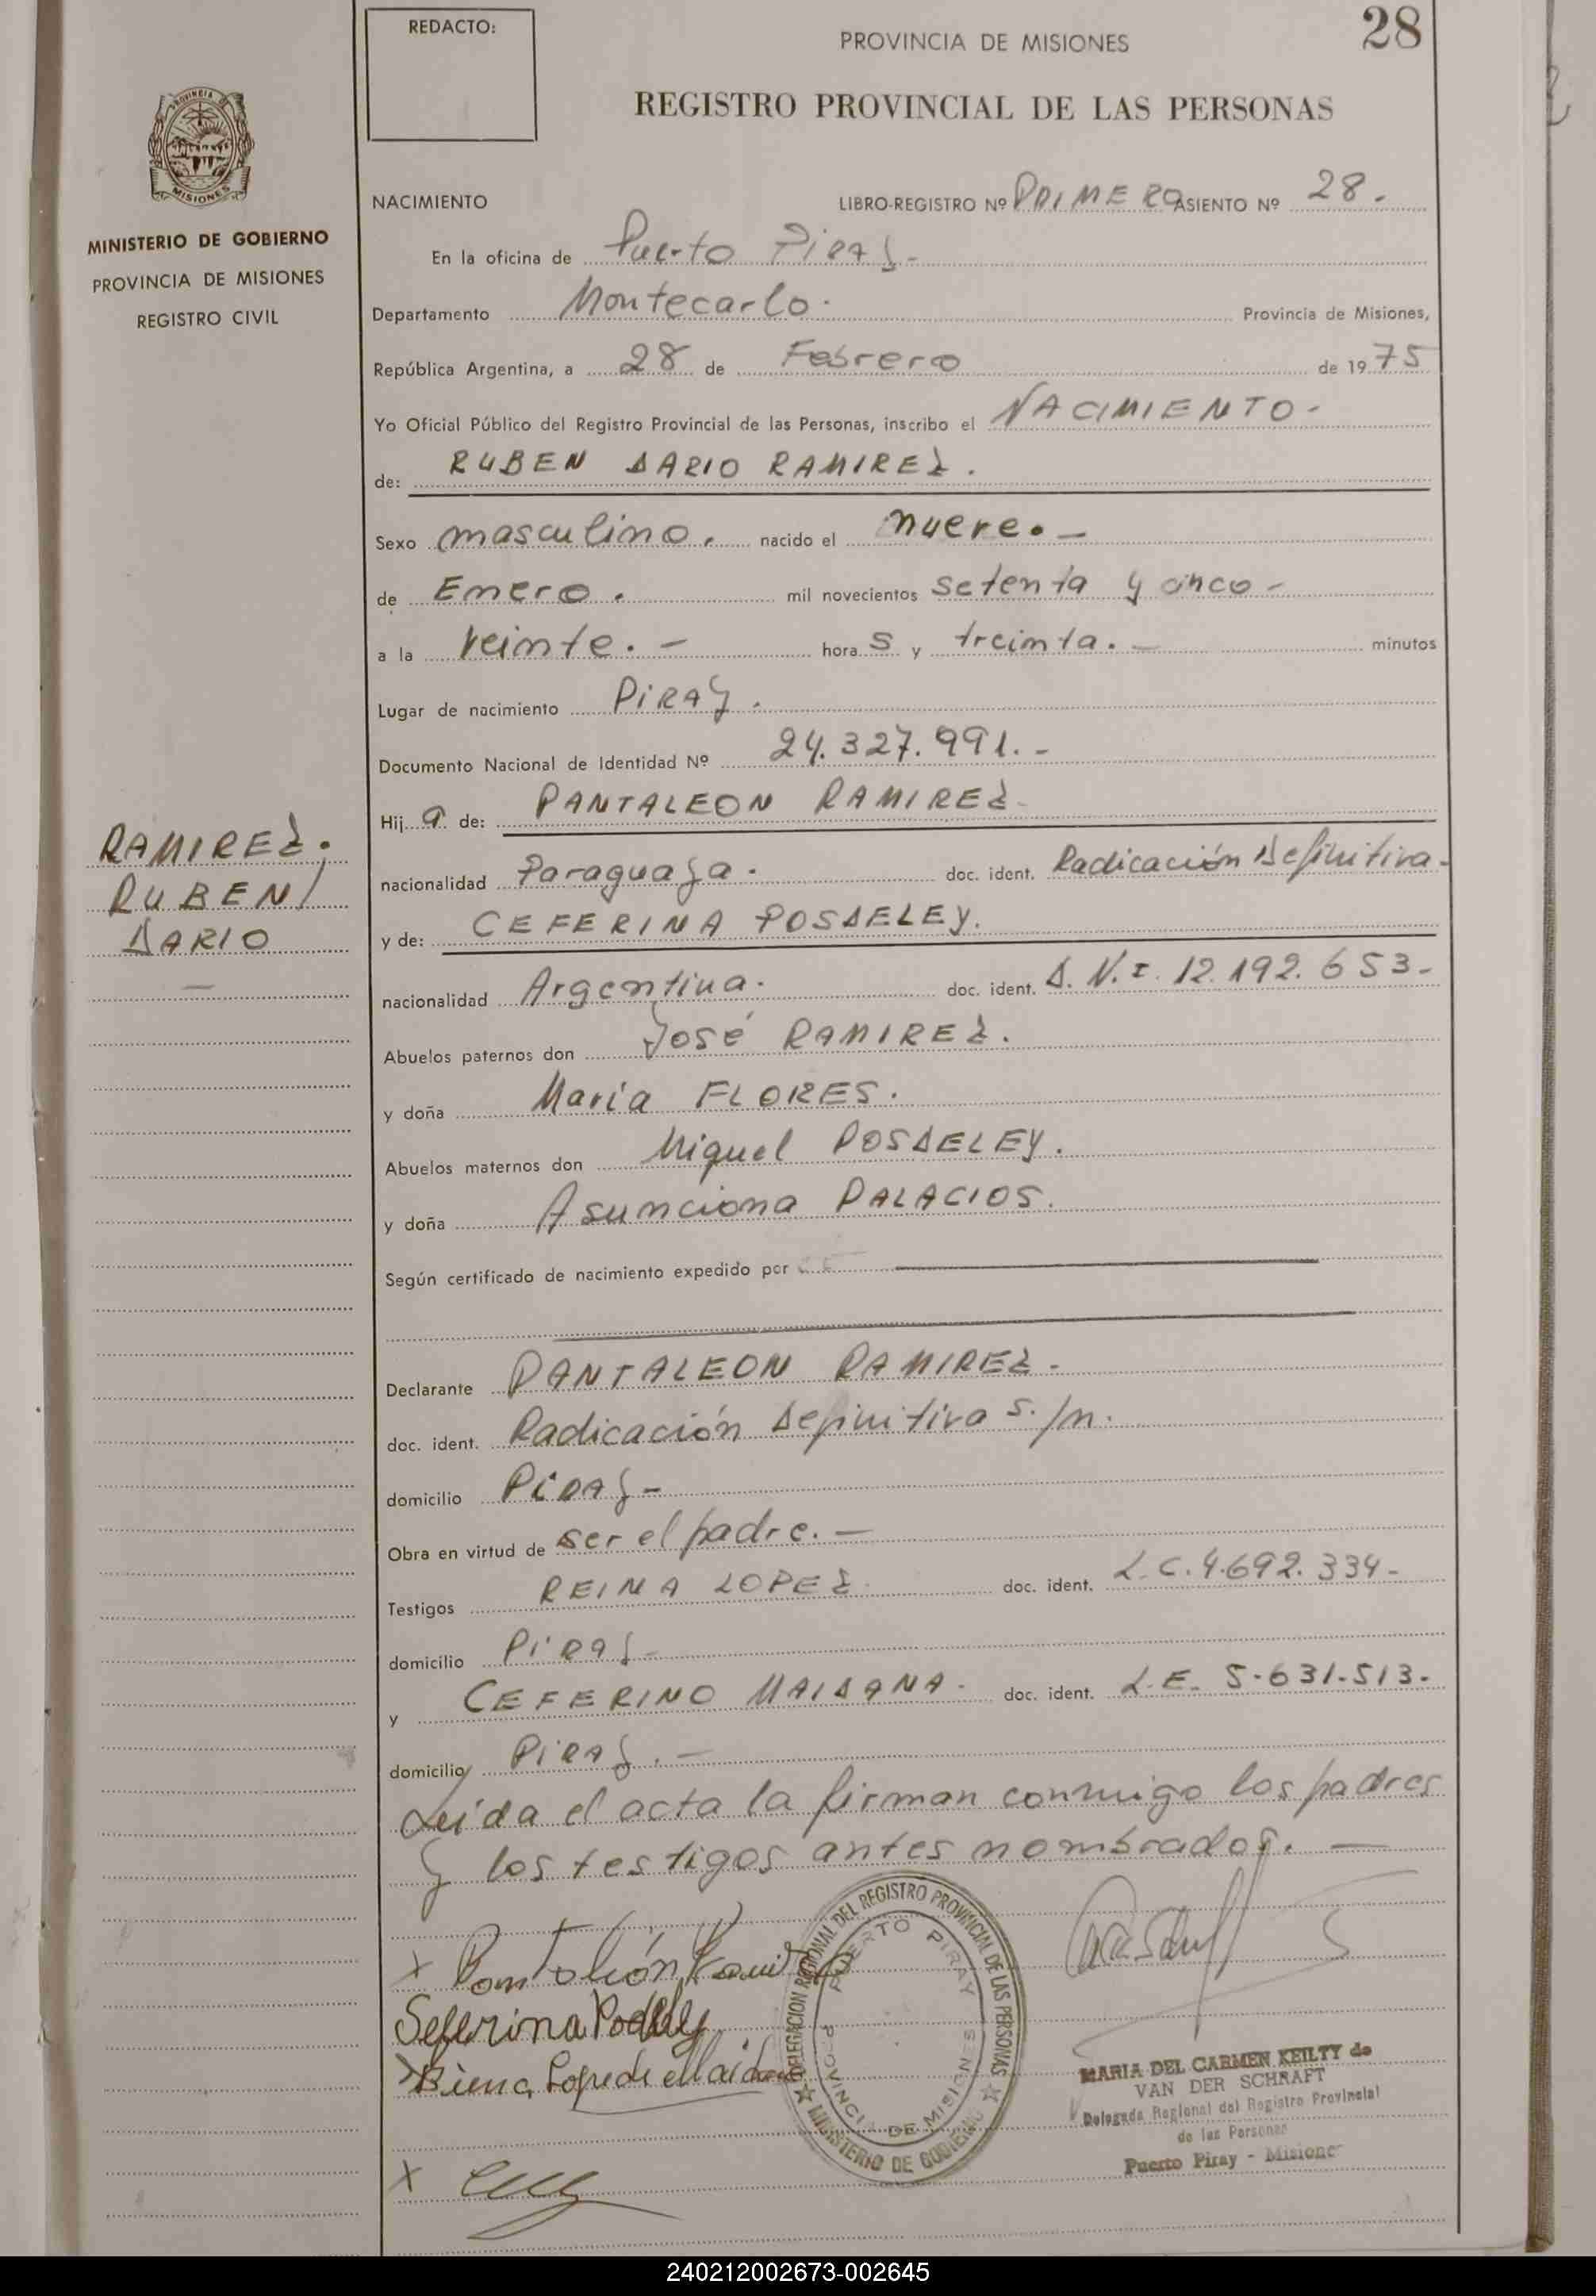 REDACTO:
PROVINCIA DE MISIONES
28
REGISTRO PROVINCIAL DE LAS PERSONAS
PROVINCIA
MISIONES
MINISTERIO DE GOBIERNO
PROVINCIA DE MISIONES
REGISTRO CIVIL
NACIMIENTO LIBRO-REGISTRO Nº PRIMERO ASIENTO Nº 28.
En la oficina de Puerto Piray.-
Departamento Montecarlo. Provincia de Misiones,
República Argentina, a 28 de Febrero de 1975
Yo Oficial Público del Registro Provincial de las Personas, inscribo el NACIMIENTO-
de: RUBEN DARIO RAMIREZ.
Sexo masculino. nacido el nueve.-
de Enero. mil novecientos setenta y cinco-
a la veinte.- hora s y treinta.- minutos
Lugar de nacimiento PIRAY.
Documento Nacional de Identidad Nº 24.327.991.-
Hij a de: PANTALEON RAMIREZ-
RAMIREZ;
RUBEN
DARIO
-
nacionalidad Paraguaya. doc. ident. Radicación Definitiva-
y de: CEFERINA POSDELEY.
nacionalidad Argentina. doc. ident. D.N.I. 12.192.653-
Abuelos paternos don José RAMIREZ.
y doña María FLORES.
Abuelos maternos don Miguel POSDELEY.
y doña Asunciona PALACIOS.
Según certificado de nacimiento expedido por
Declarante PANTALEON RAMIREZ-
doc. ident. Radicación Definitiva s./n.
domicilio PIRAY-
Obra en virtud de ser el padre.-
Testigos REINA LOPEZ. doc. ident. L.C.4.692.334-
domicilio PIRAY-
y CEFERINO MAIDANA- doc. ident. L.E. 5-631-513-
domicilio PIRAY.-
Leída el acta la firman conmigo los padres
y los testigos antes nombrados.-
x Pantaleón Ramirez
Seferina
x Lope de Maidana
x
DELEGACION REGIONAL DEL REGISTRO PROVINCIAL DE LAS PERSONAS
MINISTERIO DE GOBIERNO
PUERTO PIRAY
PROVINCIA DE MISIONES
MARIA DEL CARMEN KEILTY de
VAN DER SCHRAFT
Delegada Regional del Registro Provincial
de las Personas
Puerto Piray - Misiones
240212002673-002645